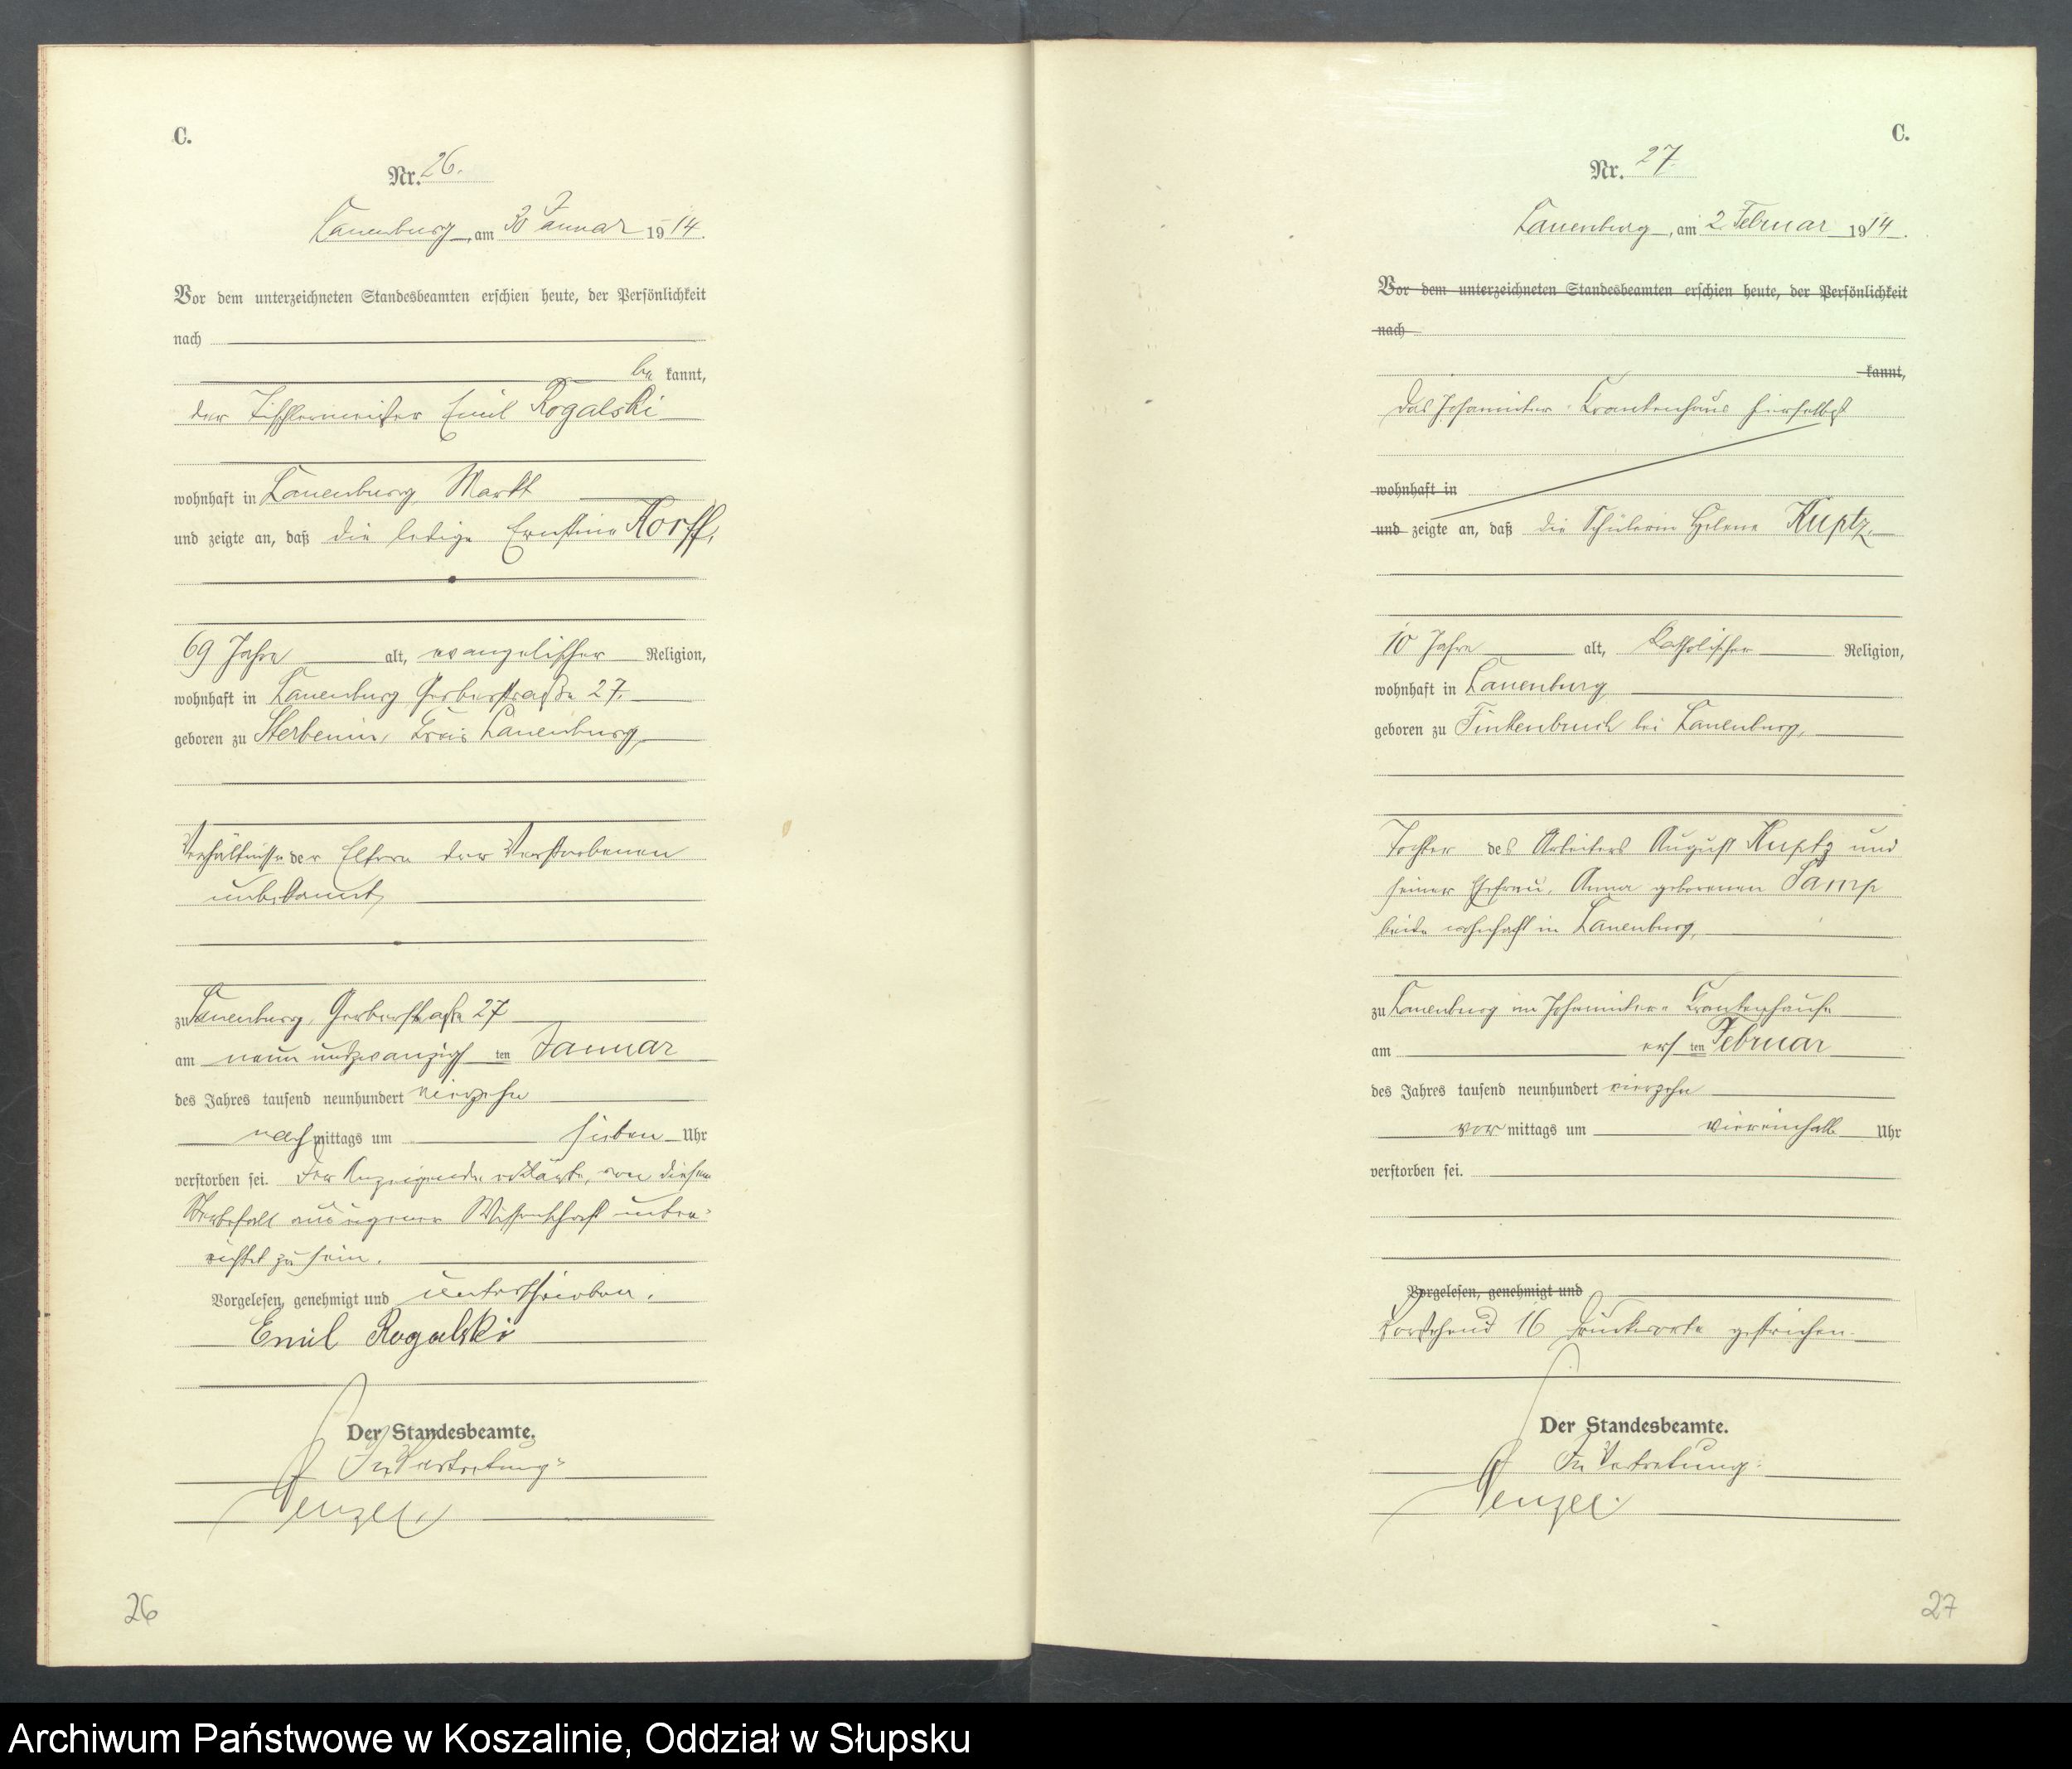 C.
Nr. 26.
Lauenburg, am 30 Januar 1914.
Vor dem unterzeichneten Standesbeamten erschien heute, der Persönlichkeit
nach
be kannt,
der Tischlermeister Emil Rogalski
wohnhaft in Lauenburg, Markt
und zeigte an, daß die ledige Ernstine Korff,
69 Jahre alt, evangelischer Religion,
wohnhaft in Lauenburg Gerberstraße 27.
geboren zu Sterbenin, Kreis Lauenburg,
Verhältnisse der Eltern der Verstorbenen
unbekannt,
zu Lauenburg, Gerberstraße 27
am neun undzwanzig ten Januar
des Jahres tausend neunhundert vierzehn
nach mittags um sieben Uhr
verstorben sei. Der Anzeigende erklärte, von diesem
Sterbefall aus eigener Wissenschaft unter-
richtet zu sein.
Vorgelesen, genehmigt und unterschrieben.
Emil Rogalski
Der Standesbeamte.
In Vertretung:
26
C.
Nr. 27.
Lauenburg, am 2 Februar 1914.
Vor dem unterzeichneten Standesbeamten erschien heute, der Persönlichkeit
nach
kannt,
das Johanniter-Krankenhaus hierselbst
wohnhaft in
und zeigte an, daß die Schülerin Helene Kuptz,
10 Jahre alt, katholischer Religion,
wohnhaft in Lauenburg
geboren zu Finkenbruch bei Lauenburg,
Tochter des Arbeiters August Kuptz und
seiner Ehefrau, Anna geborenen
beide wohnhaft in Lauenburg,
zu Lauenburg im Johanniter-Krankenhause
am ers ten Februar
des Jahres tausend neunhundert vierzehn
vor mittags um viereinhalb Uhr
verstorben sei.
Vorgelesen, genehmigt und
Vorstehend 16 Druckworte gestrichen.
Der Standesbeamte.
In Vertretung:
27
Archiwum Państwowe w Koszalinie, Oddział w Słupsku